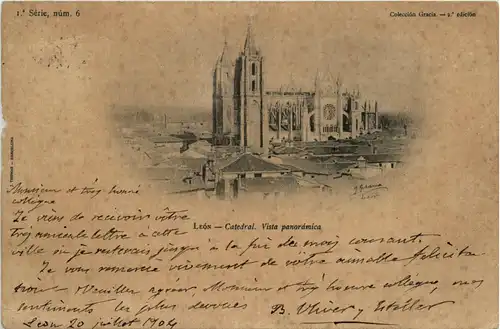 1.ª Série, núm. 6
Colección Gracia. - 2.ª edición
LEÓN - Catedral. Vista panorámica
Monsieur et très honoré
collègue
Je viens de recevoir votre
très amicale lettre à cette
ville où je resterais jusqu'à la fin de mois courant.
Je vous remercie vivement de votre aimable felicita
tion. Veuillez agréer, Monsieur et très honoré collègue, mes
sentiments les plus devoués B. Oliver y Esteller
León 20 juillet 1904